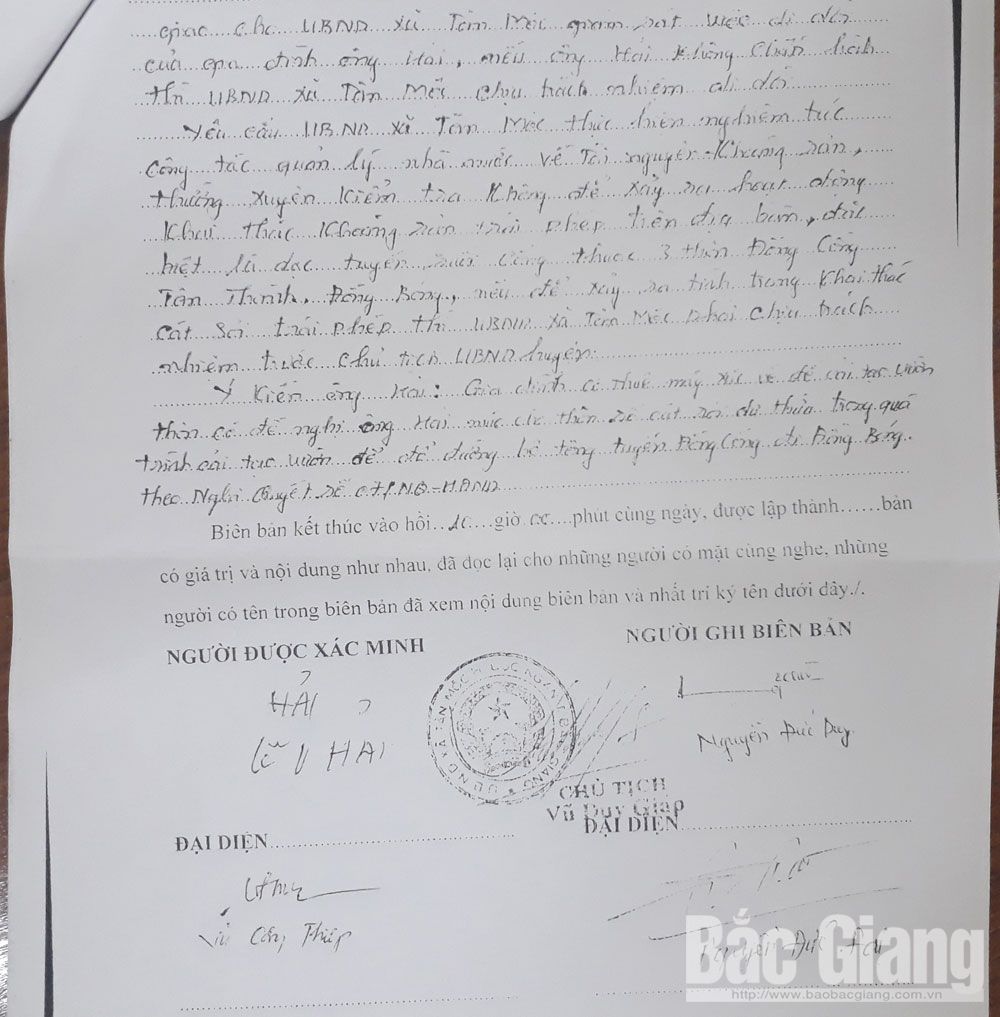 giao cho UBND xã Tân Mộc giám sát việc di dời
của gia đình ông Hải, nếu ông Hải không chấp hành
thì UBND xã Tân Mộc chịu trách nhiệm di dời
Yêu cầu UBND xã Tân Mộc thực hiện nghiêm túc
công tác quản lý nhà nước về Tài nguyên - Khoáng sản,
thường xuyên kiểm tra không để xảy ra hoạt động
khai thác khoáng sản trái phép trên địa bàn, đặc
biệt là dọc tuyến suối Cống thuộc 3 thôn Đồng Cống
Tân Thành, Đồng Bóng, nếu để xảy ra tình trạng khai thác
cát sỏi trái phép thì UBND xã Tân Mộc phải chịu trách
nhiệm trước chủ tịch UBND huyện.
Ý kiến ông Hải: Gia đình có thuê máy xúc về để cải tạo vườn
thôn có đề nghị ông Hải múc cho thôn số cát sỏi dư thừa trong quá
trình cải tạo vườn để đổ đường bê tông tuyến Đồng Cống đi Đồng Bóng
theo Nghị Quyết số 07/NQ-HĐND
Biên bản kết thúc vào hồi.......giờ 00....phút cùng ngày, được lập thành......bản
có giá trị và nội dung như nhau, đã đọc lại cho những người có mặt cùng nghe, những
người có tên trong biên bản đã xem nội dung biên bản và nhất trí ký tên dưới đây./.
NGƯỜI ĐƯỢC XÁC MINH
NGƯỜI GHI BIÊN BẢN
HẢI
HẢI
Nguyễn Đức Duy
CHỦ TỊCH
Vũ Duy Giáp
ĐẠI DIỆN
ĐẠI DIỆN
Vũ Công Thiệp
Nguyễn Đức
Bắc Giang
http://www.baobacgiang.com.vn